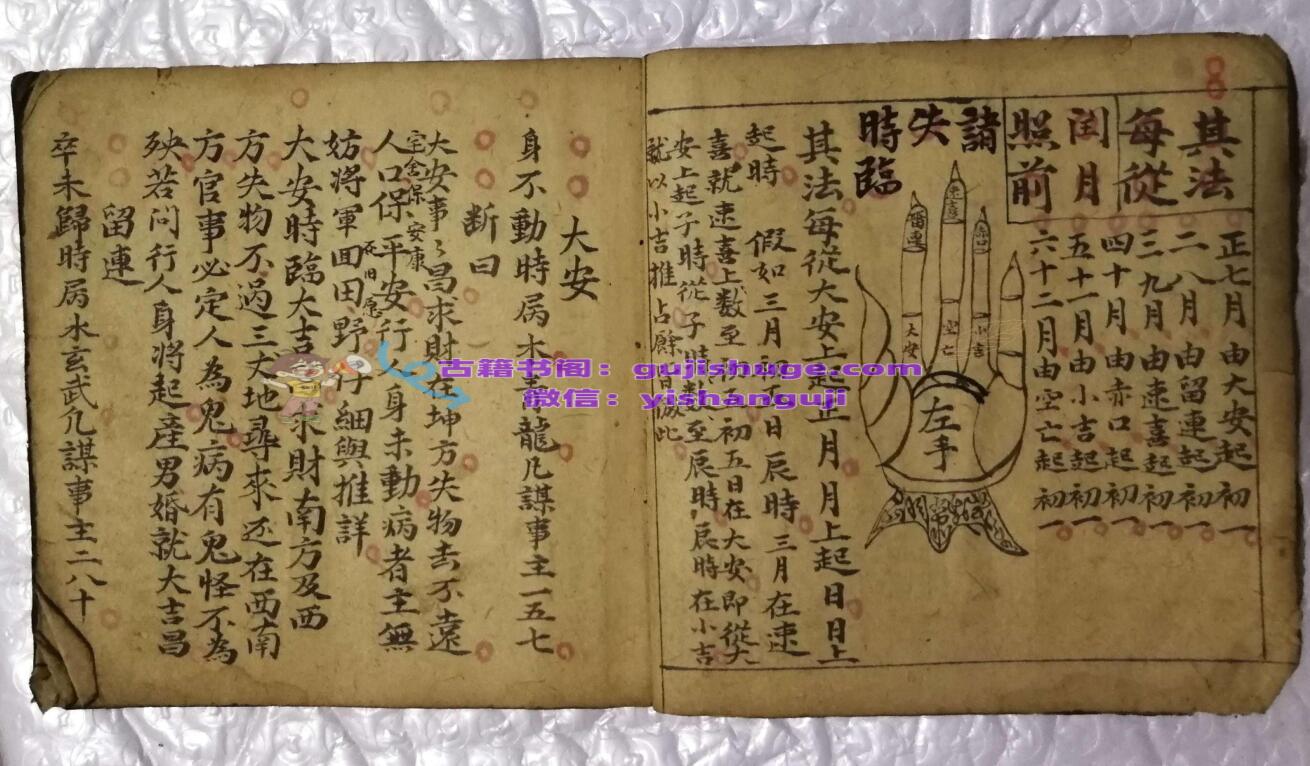 其法
每從
閏月
照前
正七月由大安起初一
二八月由留連起初一
三九月由速喜起初一
四十月由赤口起初一
五十一月由小吉起初一
六十二月由空亡起初一
諸
失
時臨
留連
速喜
赤口
大安
空亡
小吉
左手
其法每從大安上起正月月上起日日上
起時 假如三月初五日辰時三月在速
喜就速喜上数至初五初五日在大安即從大
安上起子時從子時数至辰時辰時在小吉
就以小吉推占餘皆倣此
大安
身不動時屬木青龍凡謀事主一五七
断曰
大安事〻昌求財在坤方失物去不遠
宅舍保安康
人口保平安行人身未動病者主無
妨將軍回田野仔細與推詳
大安時臨大吉求財南方及西
方失物不過三天地尋來还在西南
方官事必定人為鬼病有鬼怪不為
殃若問行人身將起產男婚就大吉昌
留連
卒未歸時屬水玄武凡謀事主二八十
古籍书阁：gujishuge.com
微信：yishanguji